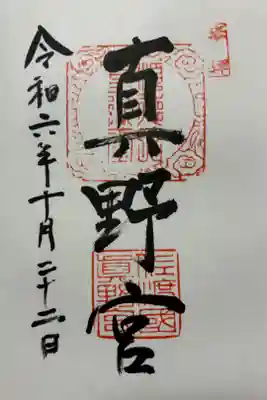 真野宮
令和六年十月二十二日
佐渡國
眞野宮